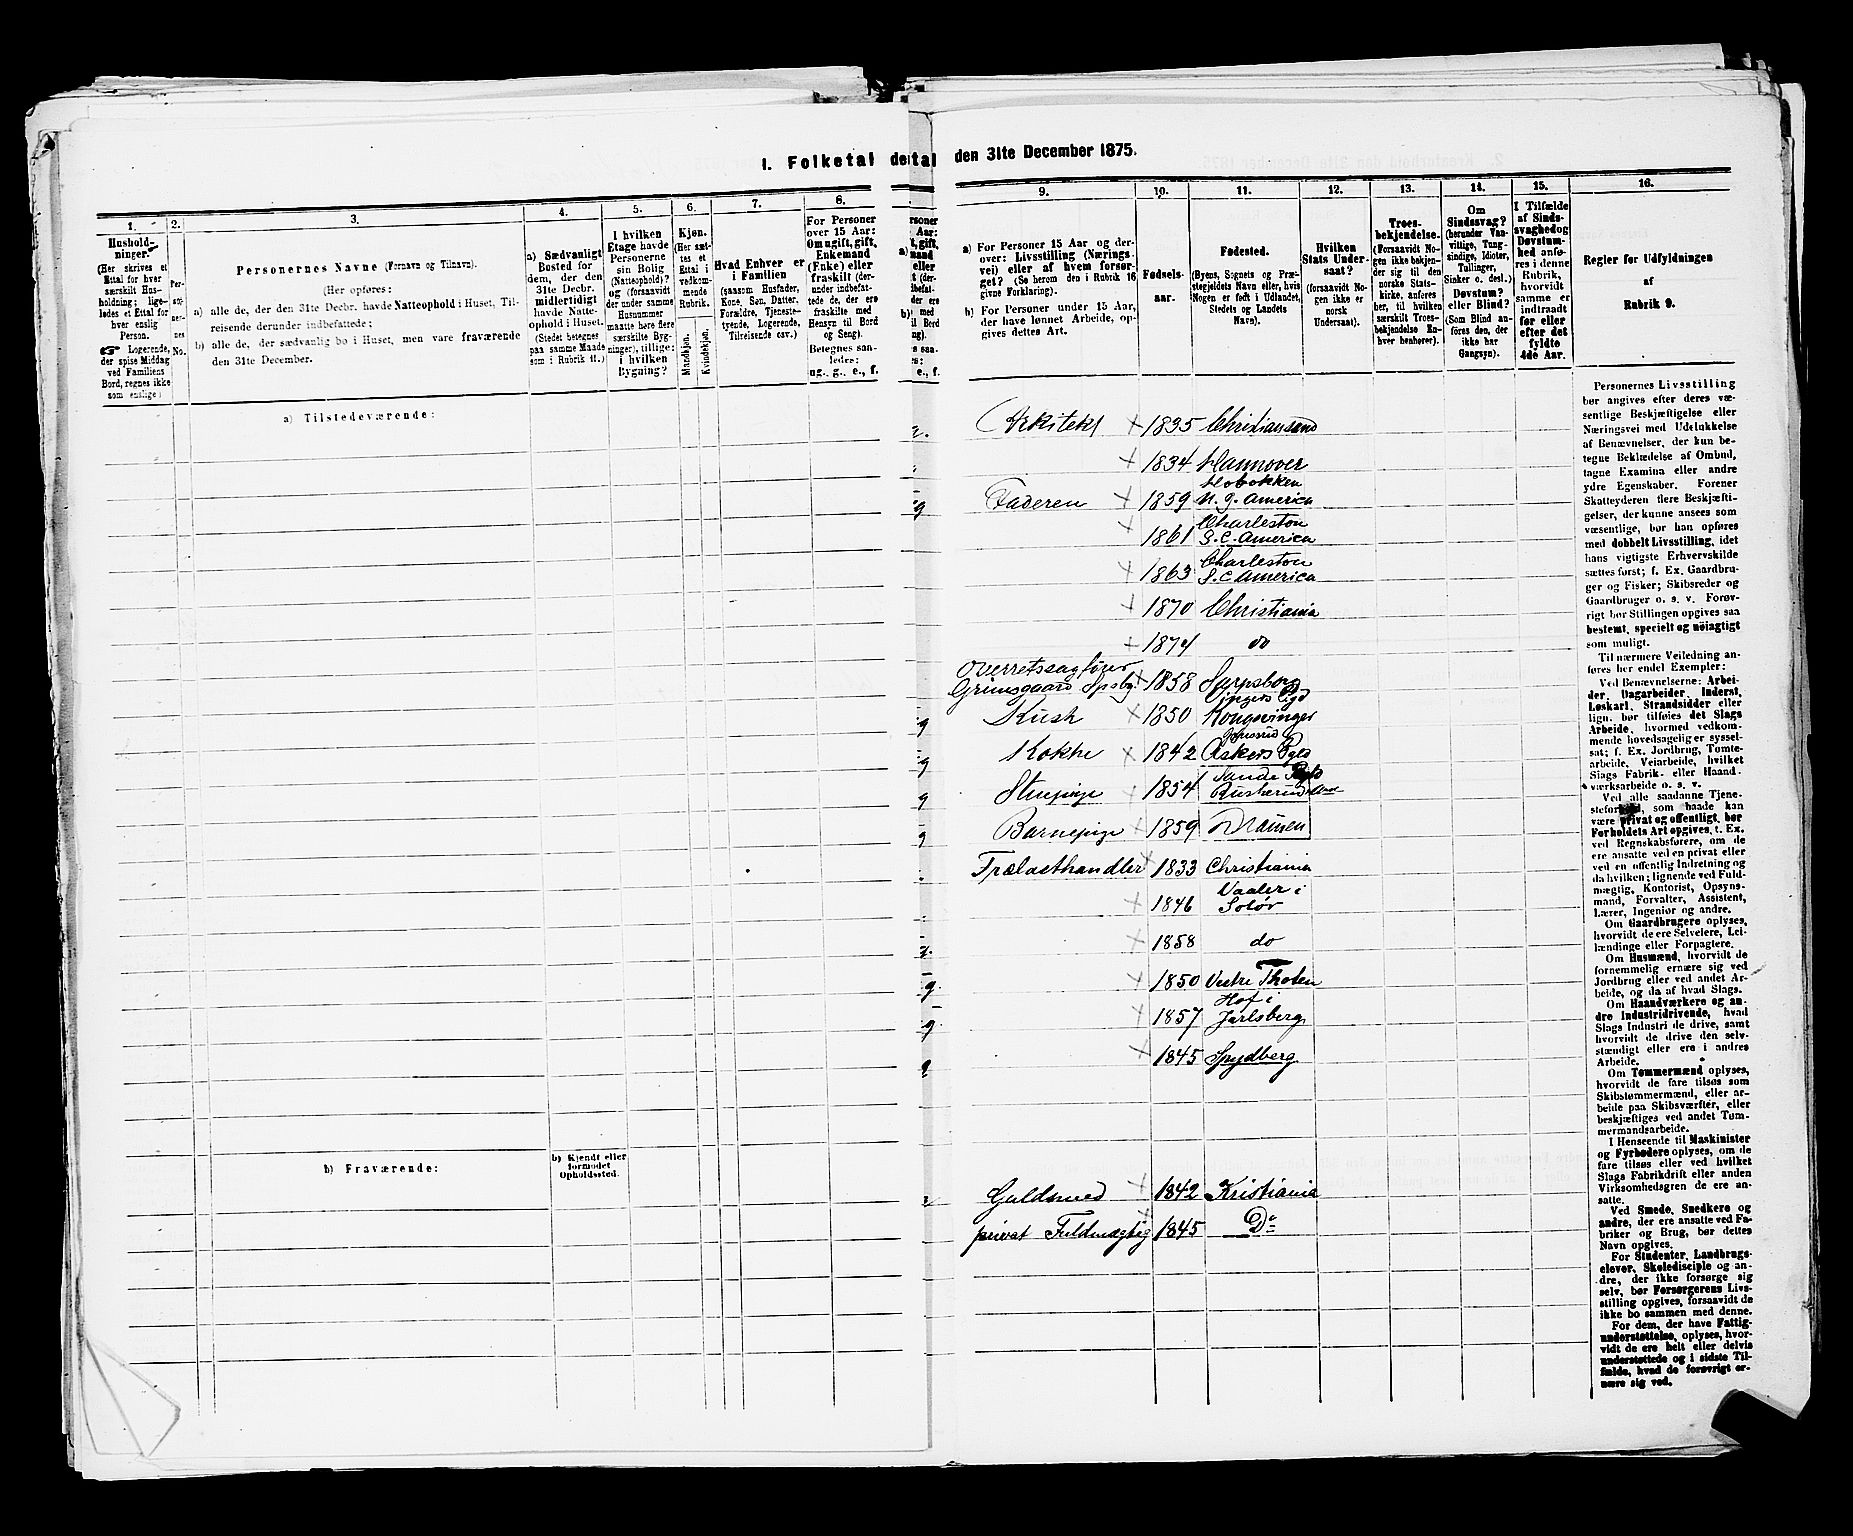 1. Folketal
detal
den 31te December 1875.
1.
2.
3.
4.
5.
6.
7.
8.
9.
10.
11.
12.
13.
14.
15.
16.
Hushold-
ninger.
(Her skrives et
Ettal for hver
særskilt Hus-
holdning; lige-
ledes et Ettal for
hver enslig
Person.
Logerende,
der spise Middag
ved Familiens
Bord, regnes ikke
som enslige)
Per-
so-
ner-
nes
No.
Personernes Navne (Fornavn og Tilnavn).
(Her opføres:
a) alle de, der den 31te Decbr. havde Natteophold i Huset, Til-
reisende derunder indbefattede;
b) alle de, der sædvanlig bo i Huset, men vare fraværende
den 31te December.
a) Sædvanligt
Bosted for
dem, der den
31te Decbr.
midlertidigt
havde Natte-
ophold i Huset.
(Stedet betegnes
paa samme Maade
som i Rubrik 11.)
I hvilken
Etage havde
Personerne
sin Bolig
(Natteophold)?
og (forsaavidt
der under samme
Husnummer
maatte høre flere
særskilte Byg-
ninger), tillige:
i hvilken
Bygning?
Kjøn.
(Her sæt-
tes et
Ettal i
vedkom-
mende
Rubrik.
Mandkjøn.
Kvindekjøn.
Hvad Enhver er
i Familien
(saasom Husfader,
Kone, Søn, Datter,
Forældre, Tjeneste-
tyende, Logerende,
Tilreisende osv.)
For Personer
over 15 Aar:
Om ugift, gift,
Enkemand
(Enke) eller
fraskilt (der-
under indbefat-
tede de, der ere
fraskilte med
Hensyn til Bord
og Seng).
Betegnes saa-
ledes:
ug., g., e., f.
a) For Personer 15 Aar og der-
over: Livsstilling (Nærings-
vei) eller af hvem forsør-
get? (Se herom den i Rubrik 16
givne Forklaring).
b) For Personer under 15 Aar,
der have lønnet Arbeide, op-
gives dettes Art.
Fødsels-
aar.
Fødested.
(Byens, Sognets og Præ-
stegjeldets Navn eller, hvis
Nogen er født i Udlandet,
Stedets og Landets
Navn).
Hvilken
Stats Under-
saat?
(forsaavidt No-
gen ikke er
norsk
Undersaat).
Troes-
bekjendelse.
(Forsaavidt No-
gen ikke bekjen-
der sig til den
norske Stats-
kirke, anføres
her, til hvilken
særskilt Troes-
bekjendelse En-
hver henhører).
Om
Sindssvag?
(herunder Van-
vittige, Tung-
sindige, Idioter,
Tullinger,
Sinker o. desl.)
Døvstum?
eller Blind?
(Som Blind an-
føres den, der
ikke har
Gangsyn).
I Tilfælde
af Sinds-
svaghed og
Døvstum-
hed anfø-
res i denne
Rubrik,
hvorvidt
samme er
indtraadt
før eller
efter det
fyldte
4de Aar.
Regler for Udfyldningen
af
Rubrik 9.
a) Tilstedeværende:
Arkitekt 1835 Christianssand
1834 Hannover
Faderen 1859 Hobokken
N. J. America
1861 Charleston
S. C. America
1863 Charleston
S. C. America
1870 Christiania
1874 do
Overretssagfører
Grimsgaard 1858 Sarpsborg
Kusk 1850 Kongsvinger
Kokke 1842 Askers Pgld
Stuepige 1854 Sande
Barnepige 1859
Trælasthandler 1833 Christiania
1846 Vaaler i
Solør
1858 do
1850 Vestre Thoten
1857 Hof i
Jarlsberg
1845 Spydberg
b) Fraværende:
b) Kjendt eller
formodet
Opholdssted.
Guldsmed 1842 Kristiania
privat Fuldmægtig 1845 Do
Personernes Livsstilling
bør angives efter deres væ-
sentlige Beskjæftigelse eller
Næringsvei med Udelukkelse
af Benævnelser, der kun be-
tegne Beklædelse af Ombud,
tagne Examina eller andre
ydre Egenskaber. Forener
Skatteyderen flere Beskjæfti-
gelser, der kunne ansees som
væsentlige, bør han opføres
med dobbelt Livsstilling, idet
hans vigtigste Erhvervskilde
sættes først; f. Ex. Gaardbru-
ger og Fisker; Skibsreder og
Gaardbruger o. s. v. Forøv-
rigt bør Stillingen opgives saa
bestemt, specielt og nøiagtigt
som muligt.
Til nærmere Veiledning an-
føres her endel Exempler:
Ved Benævnelserne: Arbei-
der, Dagarbeider, Inderst,
Løskarl, Strandsidder eller
lign. bør tilføies det Slags
Arbeide, hvormed vedkom-
mende hovedsagelig er syssel-
sat; f. Ex. Jordbrug, Tomte-
arbeide, Veiarbeide, hvilket
Slags Fabrik- eller Haand-
værksarbeide o. s. v.
Ved alle saadanne Tjene-
steforhold, som baade kan
være privat og offentligt, bør
Forholdets Art opgives, t. Ex.
ved Regnskabsførere, om de
ere ansatte ved en privat eller
ved en offentlig Indretning og
da hvilken; lignende ved Fuld-
mægtig, Kontorist, Opsyns-
mand, Forvalter, Assistent,
Lærer, Ingeniør og andre.
Om Gaardbrugere oplyses,
hvorvidt de ere Selveiere, Lei-
lændinge eller Forpagtere.
Om Husmænd, hvorvidt de
fornemmelig ernære sig ved
Jordbrug eller ved andet Ar-
beide, og da af hvad Slags.
Om Haandværkere og an-
dre Industridrivende, hvad
Slags Industri de drive, samt
hvorvidt de drive den selv-
stændigt eller ere i andres
Arbeide.
Om Tømmermænd oplyses,
hvorvidt de fare tilsøs som
Skibstømmermænd, eller ar-
beide paa Skibsværfter, eller
beskjæftiges ved andet Tøm-
mermandsarbeide.
I Henseende til Maskinister
og Fyrbødere oplyses, om de
fare tilsøs eller ved hvilket
Slags Fabrikdrift eller anden
Virksomhedsgren de ere an-
satte.
Ved Smede, Snedkere og
andre, der ere ansatte ved Fa-
briker og Brug, bør dettes
Navn opgives.
For Studenter, Landbrugs-
elever, Skoledisciple og an-
dre, der ikke forsørge sig
selv, bør Forsørgerens Livs-
stilling opgives, forsaavidt de
ikke bo sammen med denne.
For dem, der have Fattig-
understøttelse, oplyses, hvor-
vidt de ere helt eller delvis
understøttede og i sidste Til-
fælde, hvad de forøvrigt er-
nære sig ved.